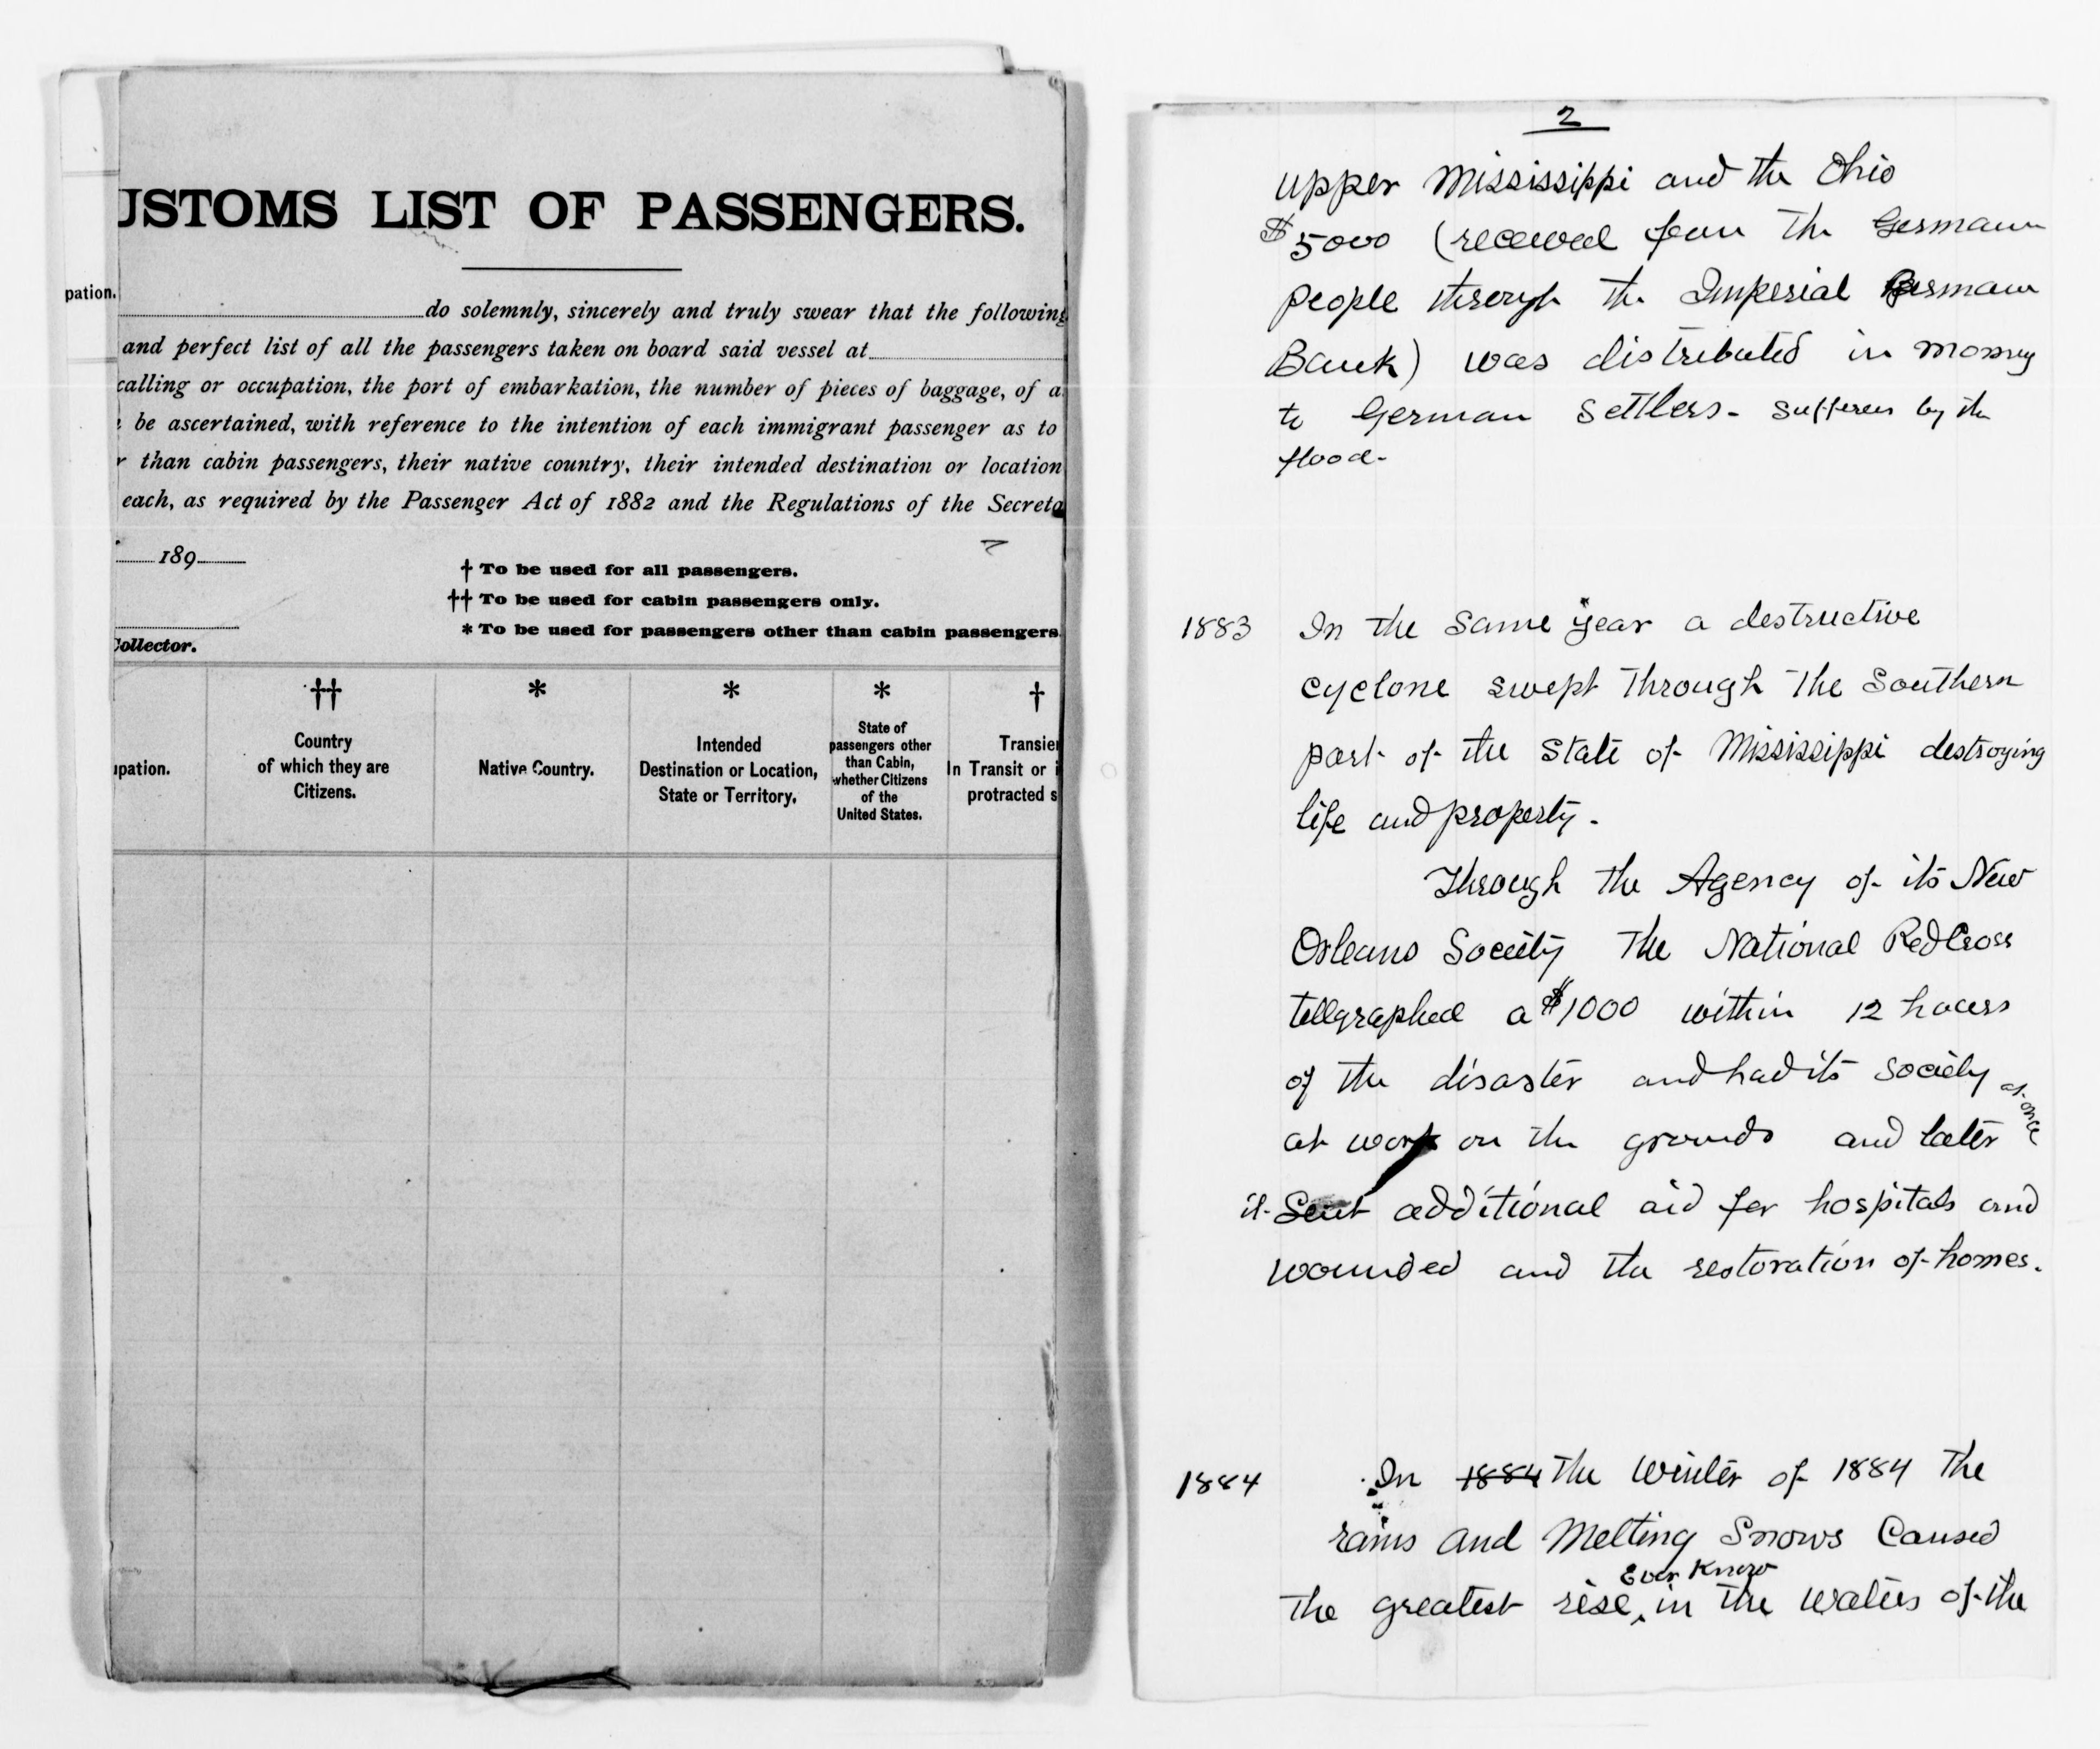 USTOMS LIST OF PASSENGERS.
pation.
do solemnly, sincerely and truly swear that the following
and perfect list of all the passengers taken on board said vessel at
calling or occupation, the port of embarkation, the number of pieces of baggage, of a
be ascertained, with reference to the intention of each immigrant passenger as to
r than cabin passengers, their native country, their intended destination or location
each, as required by the Passenger Act of 1882 and the Regulations of the Secreta
189
† To be used for all passengers.
†† To be used for cabin passengers only.
* To be used for passengers other than cabin passengers.
Collector.
upation.
††
Country
of which they are
Citizens.
*
Native Country.
*
Intended
Destination or Location,
State or Territory.
*
State of
passengers other
than Cabin,
whether Citizens
of the
United States.
†
Transien
In Transit or i
protracted s
2
upper Mississippi and the Ohio
$5000 (received from the German
people through the Imperial German
Bank) was distributed in money
to German Settlers - sufferers by the
flood -
1883 In the same year a destructive
cyclone swept through the Southern
part of the State of Mississippi destroying
life and property.
Through the Agency of its New
Orleans Society The National Red Cross
telegraphed a $1000 within 12 hours
of the disaster and had its society at once
at work on the grounds and later
it Sent additional aid for hospitals and
wounded and the restoration of homes.
1884 In 1884 the Winter of 1884 The
rains and Melting Snows Caused
The greatest rise Ever Know in the waters of the